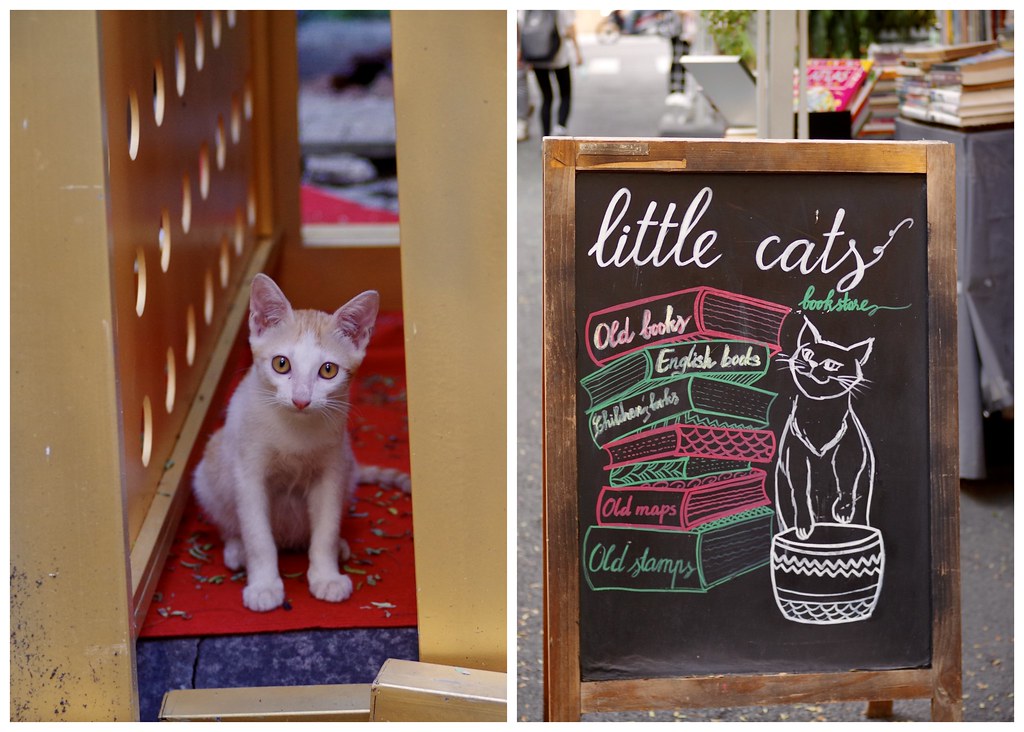 little cats
bookstore
Old books
English books
Children's books
Old maps
Old stamps
ATLAS